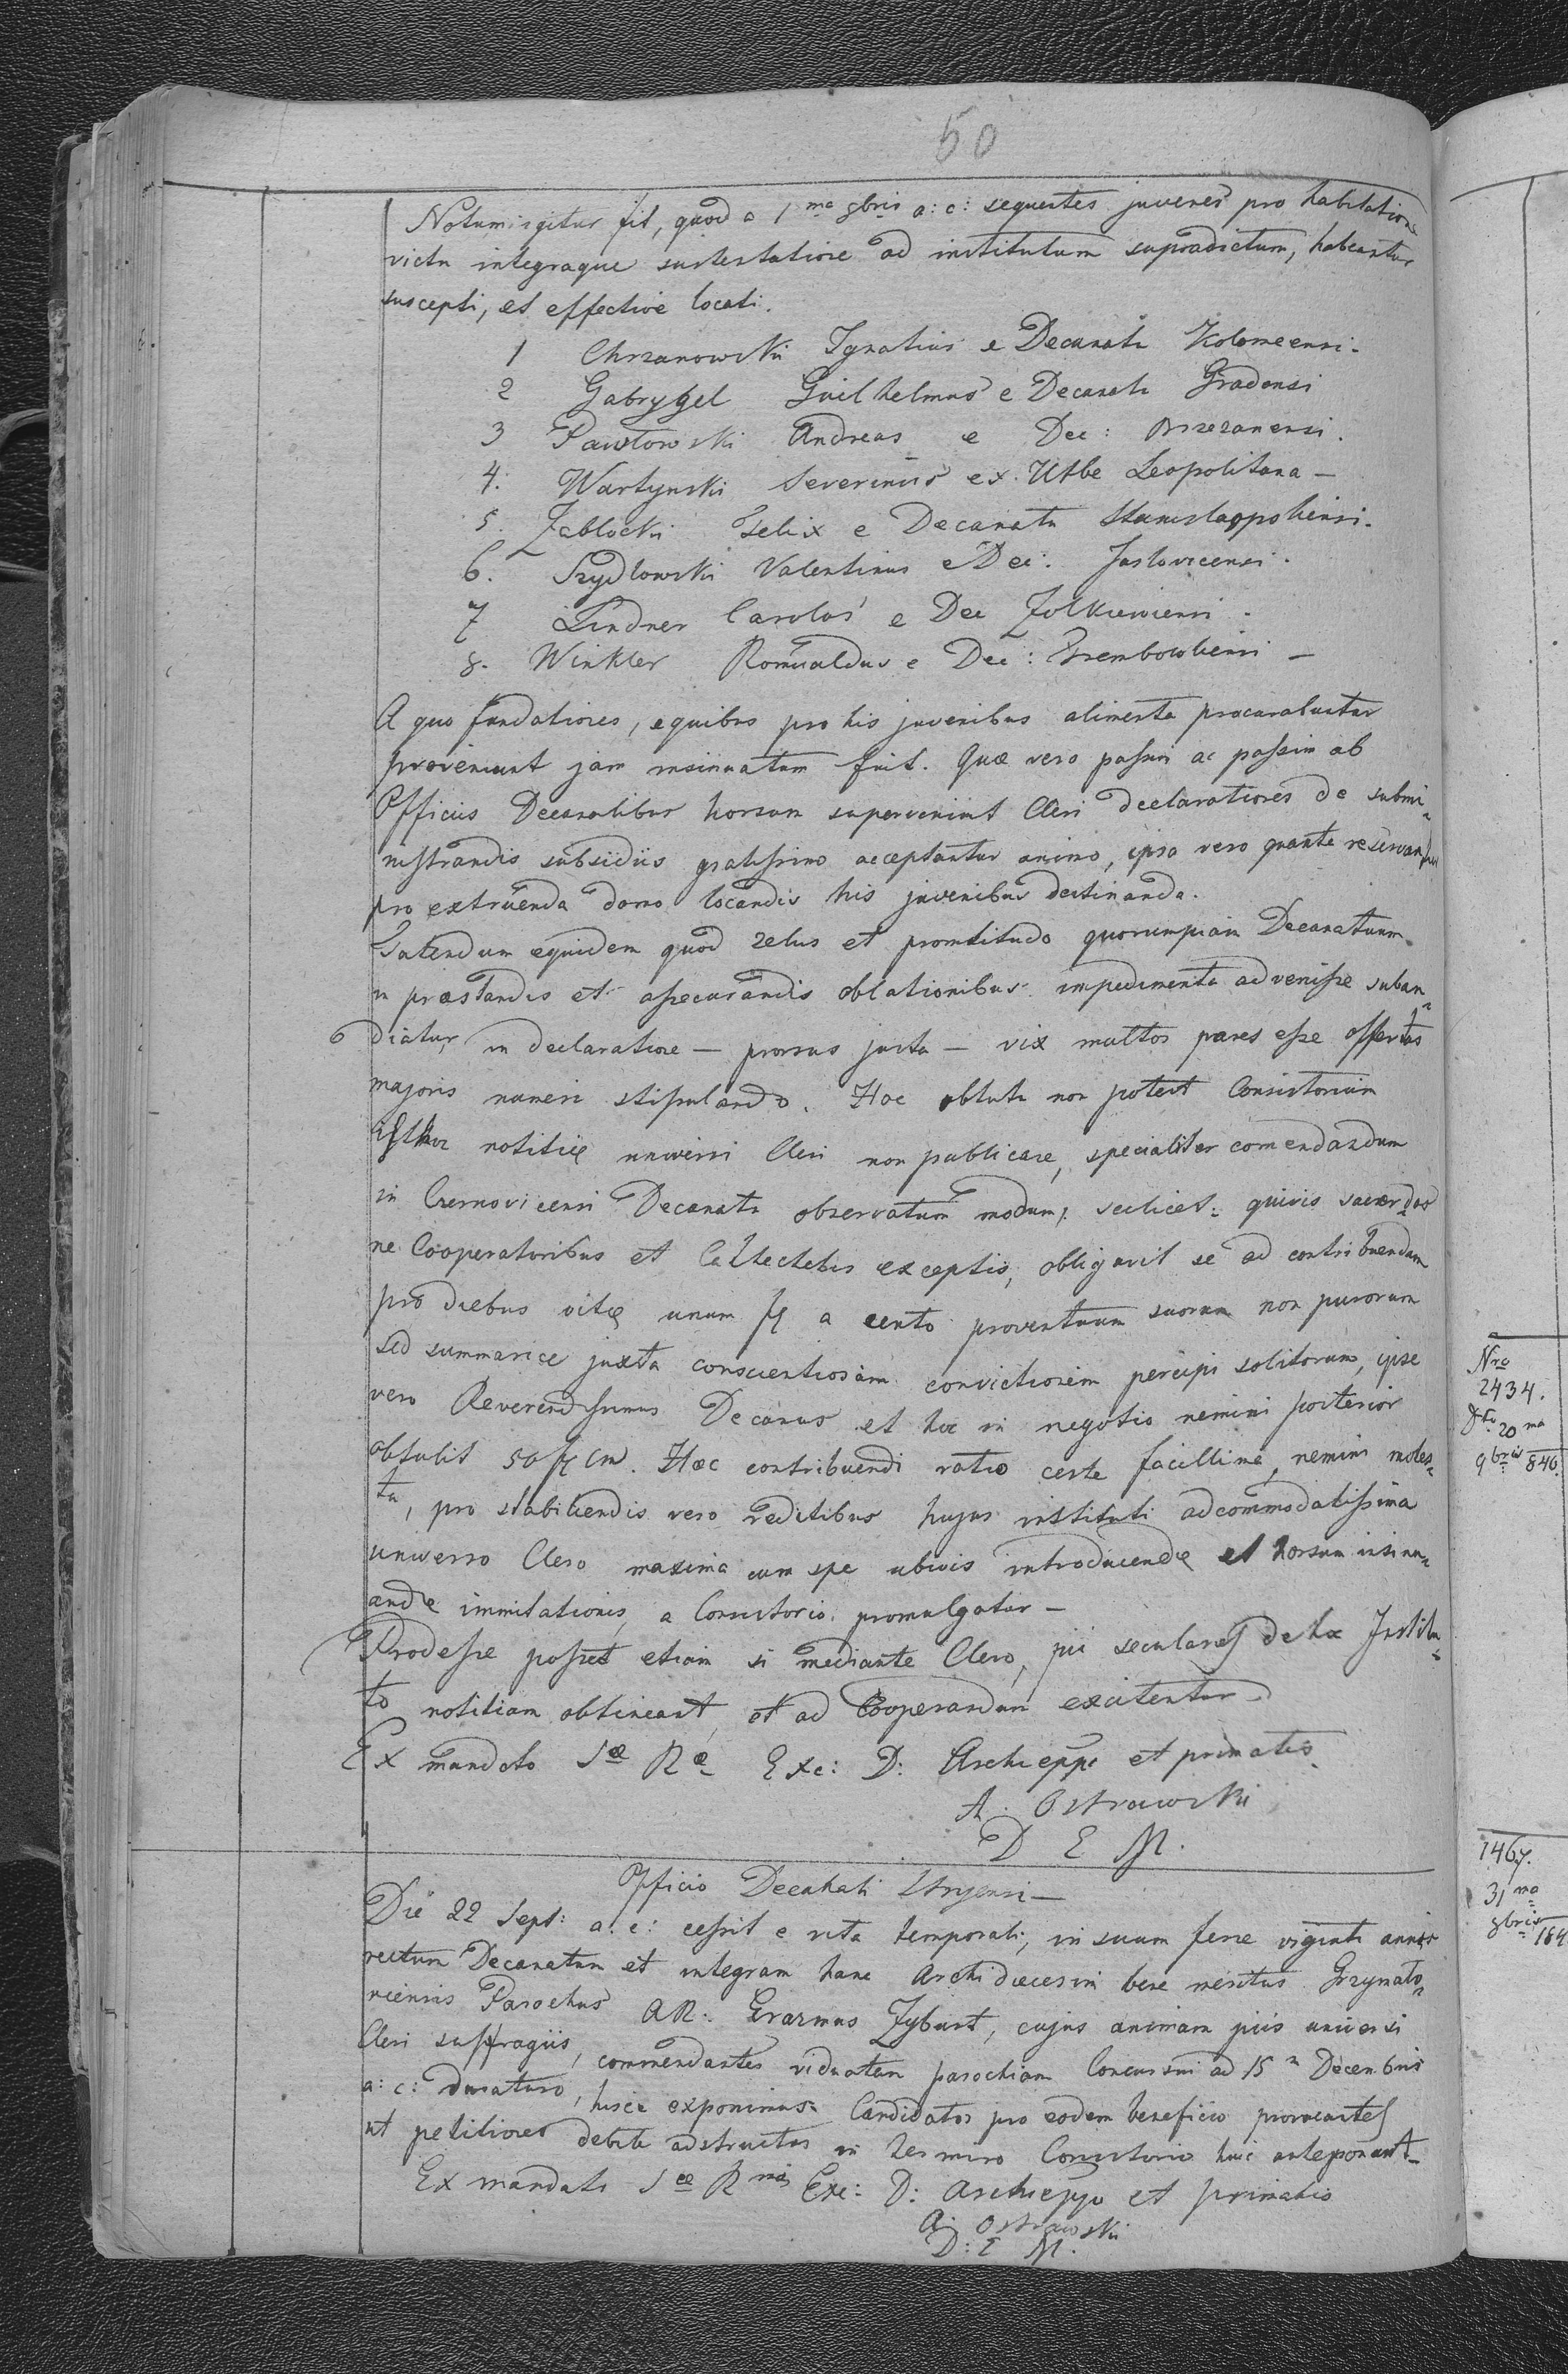 50
Notum igitur fit, quod a 1ma 8bris a: c: sequentes juvenes pro habitatione
victu integraque sustentatione ad institutum supradictum, habeantur
suscepti, et effective locati.
1 Chrzanowski Ignatius e Decanatu Kolomeensi.
2 Gabrygel Guilhelmus e Decanatu Gradensi
3 Pawłowski Andreas e Dec: Brzezanensi.
4. Wartynski Severinus ex Urbe Leopolitana –
5. Zablocki Felix e Decanatu Stanislaopoliensi.
6. Szydlowski Valentinus e Dec: Jaslovicensi.
7 Lindner Carolus e Dec Zolkiewiensi.
8. Winkler Romualdus e Dec: Trembowliensi –
A quo fundationes, e quibus pro his juvenibus alimenta procurabuntur
proveniant jam insinuatum fuit. Quæ vero passim ac passim ab
Officiis Decanalibus horsum superveniunt Cleri declarationes de submi-
nistrandis subsidiis gratissimo acceptantur animo, ipsa vero quanta
pro extruenda domo locandis his juvenibus destinanda.
Fatendum equidem quod zelus et promtitudo quorumpiam Decanatuum
in præstandis et assecurandis oblationibus impedimenta advenisse suban-
diatur, in declaratione – prorsus justa – vix multos pares esse offertas
majoris numeri stipulando. Hoc obtutu non potest Consistorium
notitiæ universi Cleri non publicare, specialiter comendandum
in Czernovicensi Decanatu observatum modum, scilicet: quivis sacerdos
ne Cooperatoribus et exceptis, obligavit se ad contribuendum
pro diebus vitæ unum fl a cento proventuum suorum non purorum
sed summarice juxta conscientiosam convictionem percipi solitorum, ipse
vero Reverendissimus Decanus et hoc in negotio nemini posterior
obtulit 50 fl CM. Hæc contribuendi ratio certe facillime, nemini moles-
ta, pro stabiliendis vero reditibus hujus instituti adcommodatissima
universo Clero maxima cum spe ubivis introducendæ et horsum insinu-
andæ immitationis, a Consistorio promulgatur –
Prodesse posset etiam si mediante Clero, pii seculares de hoc Institu-
to notitiam obtineant, et ad Cooperandum excitentur.
Ex mandato Sæ Ræ Exc: D: Archieppi et primatis
A. Ostrawski
D E M.
Officio Decanali Stryensi –
Die 22 Sept: a: c: cessit e vita temporali, in suum fere viginti annis
rectum Decanatum et integram hanc Archidiœcesim bene meritus Grzymalo-
viensis Parochus AR: Erazmus Zyburt, cujus animam piis universi
Cleri suffragiis, commendantes viduatam parochiam Concursui ad 15m Decembris
a: c: duraturo, hisce exponimus. Candidatos pro eodem beneficio provocantes
ut petitiones debite adstructas in termino Consistorio huic anteponant –
Ex mandato Sæ Rmæ Exc: D: Archieppi et primatis
A: Ostrawski
D: E M.
Nro
2434.
Dto 20ma
9bris 840.
1467.
31ma
8bris 184